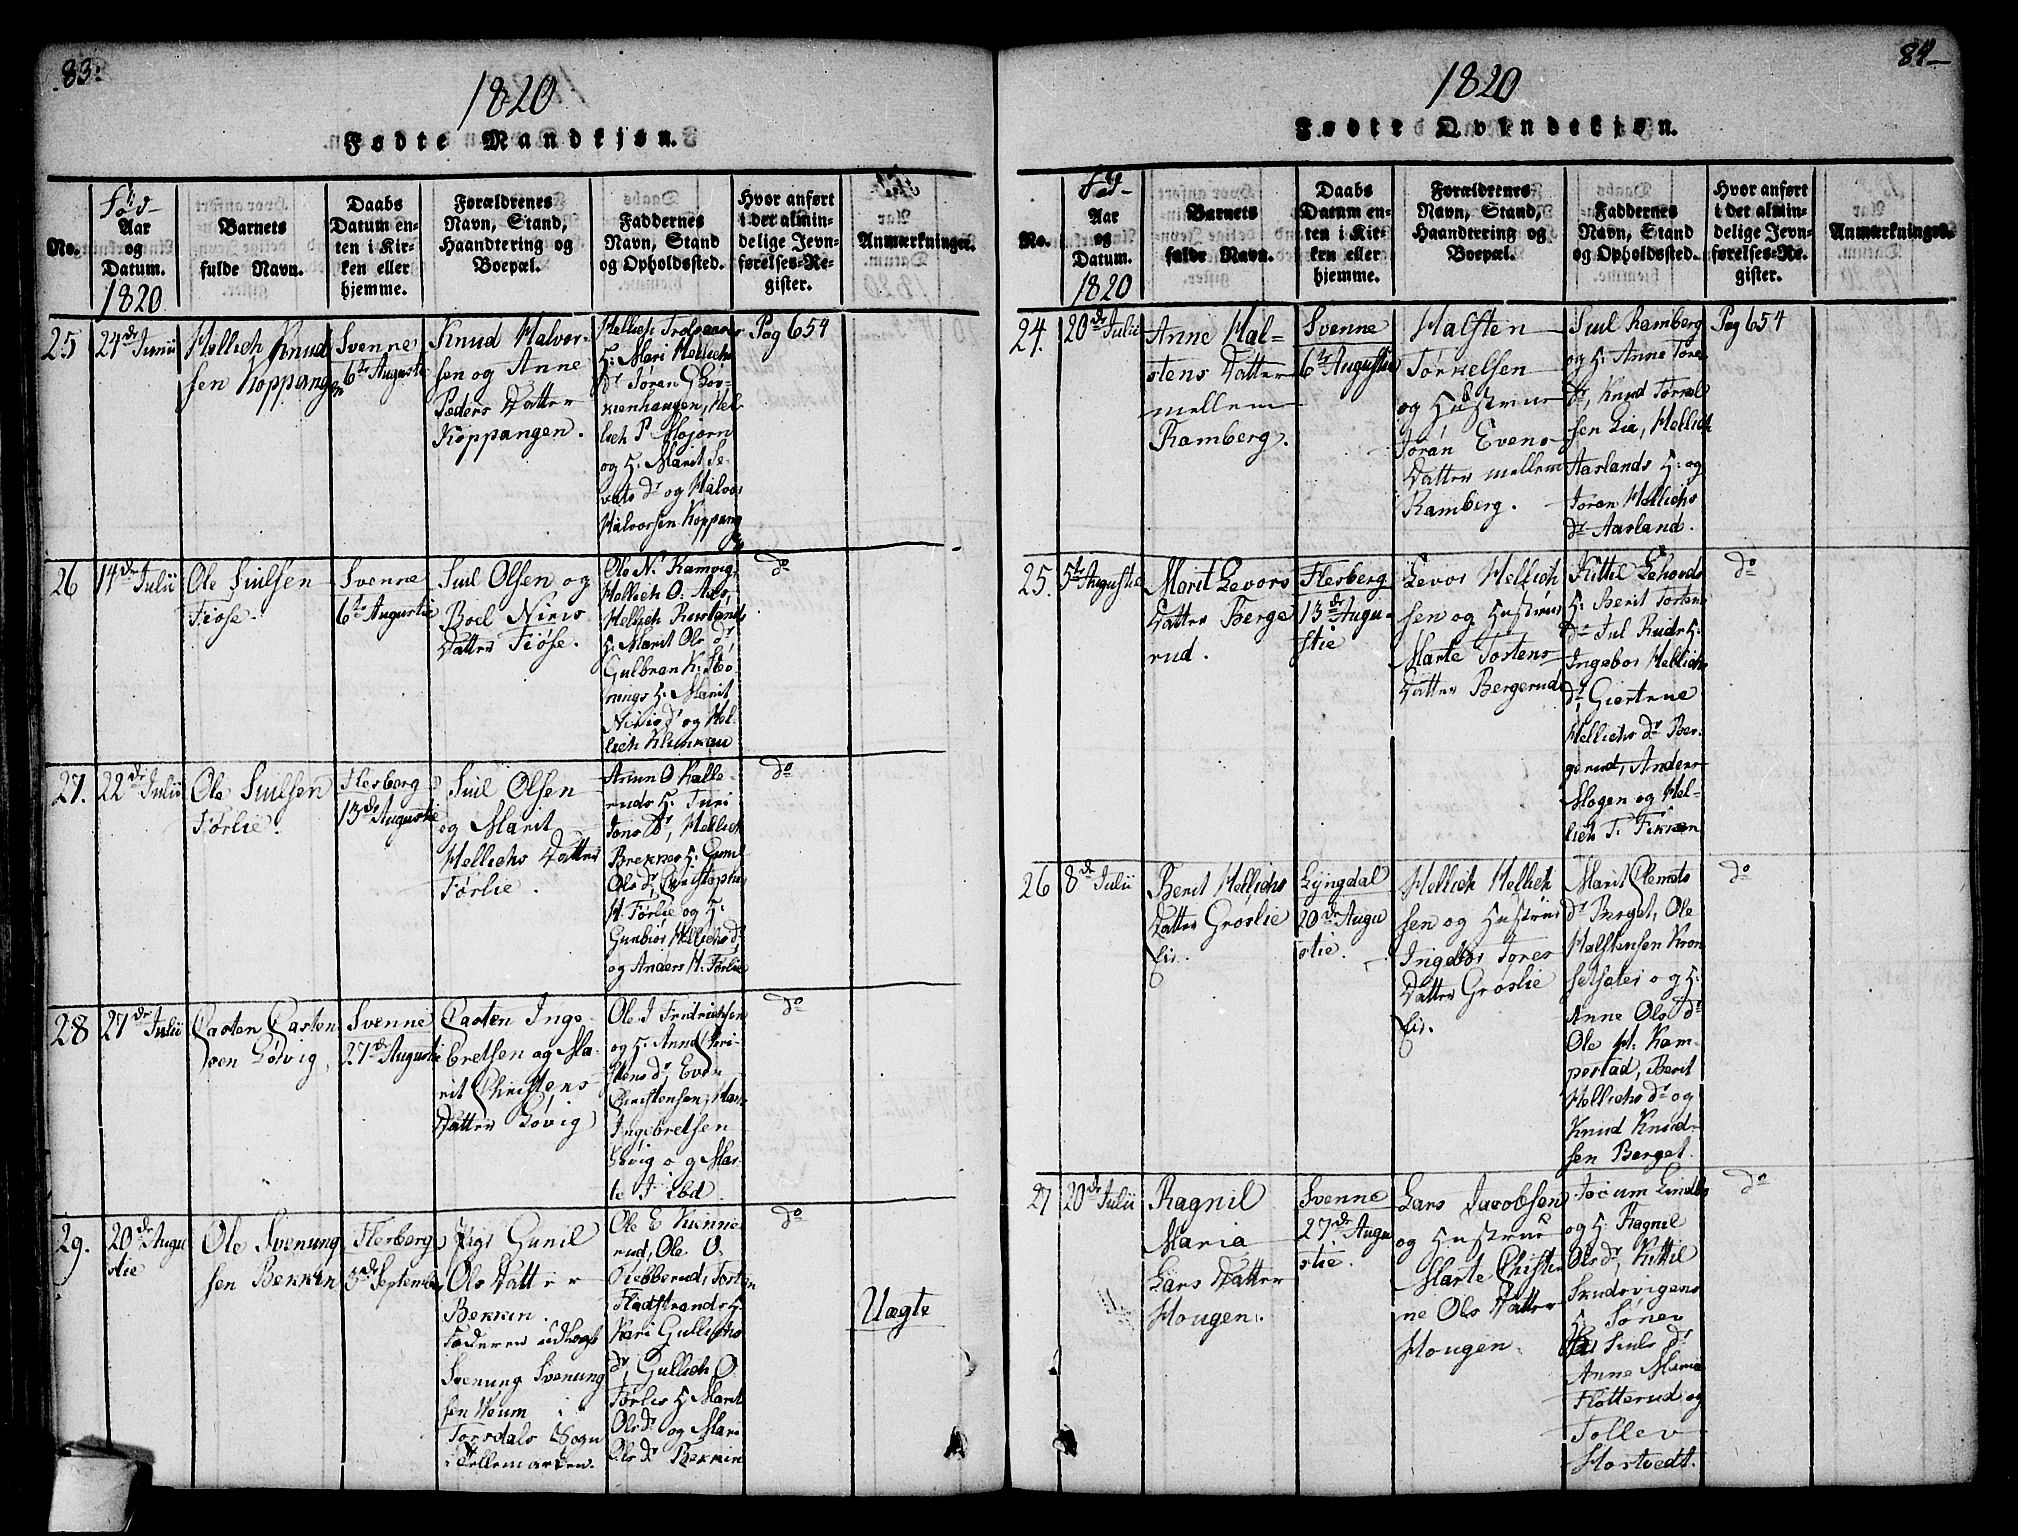 83.
1820
Fødte Mandkjøn.
No.
Fød
Aar
og
Datum.
1820
Barnets
fulde Navn.
Daabs
Datum en-
ten i Kir-
ken eller
hjemme.
Forældrenes
Navn, Stand,
Haandtering og
Boepæl.
Faddernes
Navn, Stand
og Opholdssted.
Hvor anført
i det almin-
delige Jevn-
førelses-Re-
gister.
Anmærkninger.
25
24de Junii
Hellich Knud
sen Koppangen
Svenne
6te Augustie
Knud Halvor-
sen og Anne
Peders Datter
Koppangen.
Hellich
H: Mari Hellichs
dr Jøran G
kenhaugen, Hel
lich P Mojorn
og H. Marit Se-
vats dr og Halvor
Halvorsen Koppang
Pag 654
26
14de Julii
Ole Siulsen
Fiøse.
Svenne
6te Augustie
Siul Olsen og
Boel Niris
Datter Fiøse.
Ole N. Kampig,
Hellich O. Aas,
Hellich Ruslands
H: Marit Ols dr,
Gulbran K. Stø-
nings H. Marit
Niris dr og Hel-
lich
do
27.
22de Julii
Ole Siulsen
Førlie.
Flesberg
13de Augustie
Siul Olsen
og Marit
Hellichs Datter
Førlie.
Anun O Kalle-
ruds H. Turi
Jons Dr, Hellich
Brekkes H. Gunil
Ols dr, Christopher
H. Førlie og H.
Gunbior Hellichs dr
og Anders H. Førlie
do
28
27de Julii
Casten Casten
sen Løvig,
Svenne
27de Augustie
Casten Inge-
bretsen og Ma-
rit Christens
Datter Løvig
Ole J Fridrichsen
og H. Anne Chri-
stens dr, Even
Christensen, Han
Ingebretsen
Løvig og Mar-
te J ibd.
do
29.
20de Augu
stie
Ole Svenung
sen Bekkin
Flesberg
3de September
Pigs Gunil
Ols Datter
Bekkin.
Faderen udlagt
Svenung Svenung
sen Moum i
Torsdals Sogn
i Tellemarken.
Ole E Kienne
rud, Ole O.
Støbberud, Tosten
Fladstrands H.
Kari Gullichs
dr, Gullich O
Førlies H Marit
Ols dr og Mari
Ols dr Bekkin
do
Uægte
84
1820
Fødte Qvindekjøn.
No.
Fød
Aar
og
Datum.
1820
Barnets
fulde Navn.
Daabs
Datum en-
ten i Kir-
ken eller
hjemme.
Forældrenes
Navn, Stand,
Haandtering og
Boepæl.
Faddernes
Navn, Stand
og Opholdssted.
Hvor anført
i det almin-
delige Jevn-
førelses-Re-
gister.
Anmærkninger.
24.
20de Julii
Anne Hal-
stens Datter
mellem
Ramberg.
Svenne
6te Augustie
Halsten
Torkelsen
og Hustrue
Joran Evens
Datter mellem
Ramberg.
Siul Ramberg
og H: Anne Tore
dr, Knud Torkel
sen Lia, Hellich
Aarlands H: og
Joran Hellichs
dr Aasland.
Pag 654
25.
5te Augustie
Marit Levors
Datter Berge
rud.
Flesberg
13de Augu-
stie
Levor Hellich
sen og Hustrue
Marte Tostens
Datter Bergerud
Kittil Lehovds
H. Berit Tosten
dr Jul Ruds H.
Ingebor Hellichs
dr, Giertrue
Hellichs dr Ber-
gerud, Anders
Mogen og Hel-
lich T. Fikkan
do
26
8de Julii
Berit Hellichs
Datter Groslie
Eid.
Lyngdal
20de Augu
stie.
Hellich Hellich
sen og Hustrue
Ingebor Tores
Datter Groslie
Eid.
Marit Clemets
dr Berget, Ole
Halstensen Kron
setseter og H.
Anne Ols dr
Ole H. Kam-
perstad, Berit
Hellichs dr og
Knud Knud-
sen Berget.
do
27
20de Julii
Ragnil
Maria
Lars Datter
Hougen.
Svenne
27de Augu
stie.
Lars Jacobsen
og Hustrue
Marte Christi
ne Ols Datter
Hougen
Jocum Lindbo
og H. Ragnil
Ols dr, Kittil
Skudsvigens
H. Tønev
Siuls dr
Anne Maria
Flotterud og
Tollev
Hostvedt.
do